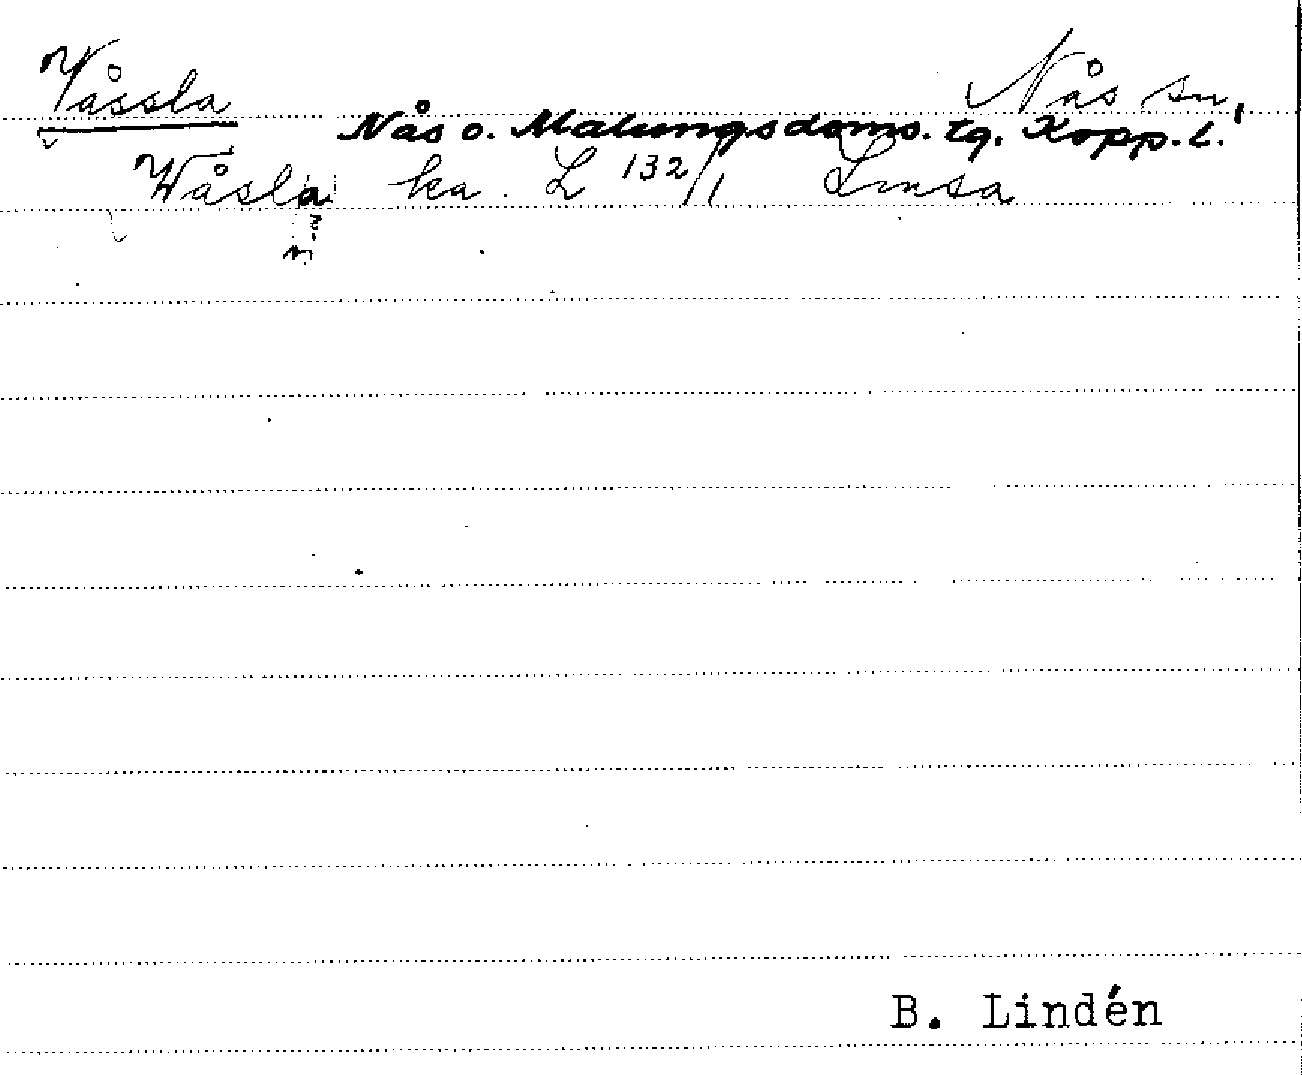 Våssla Nås sn,
Nås o. Malungs doms. tg. Kopp. l.
Wåsla ka. L 132/1 Linsa
B. Lindén